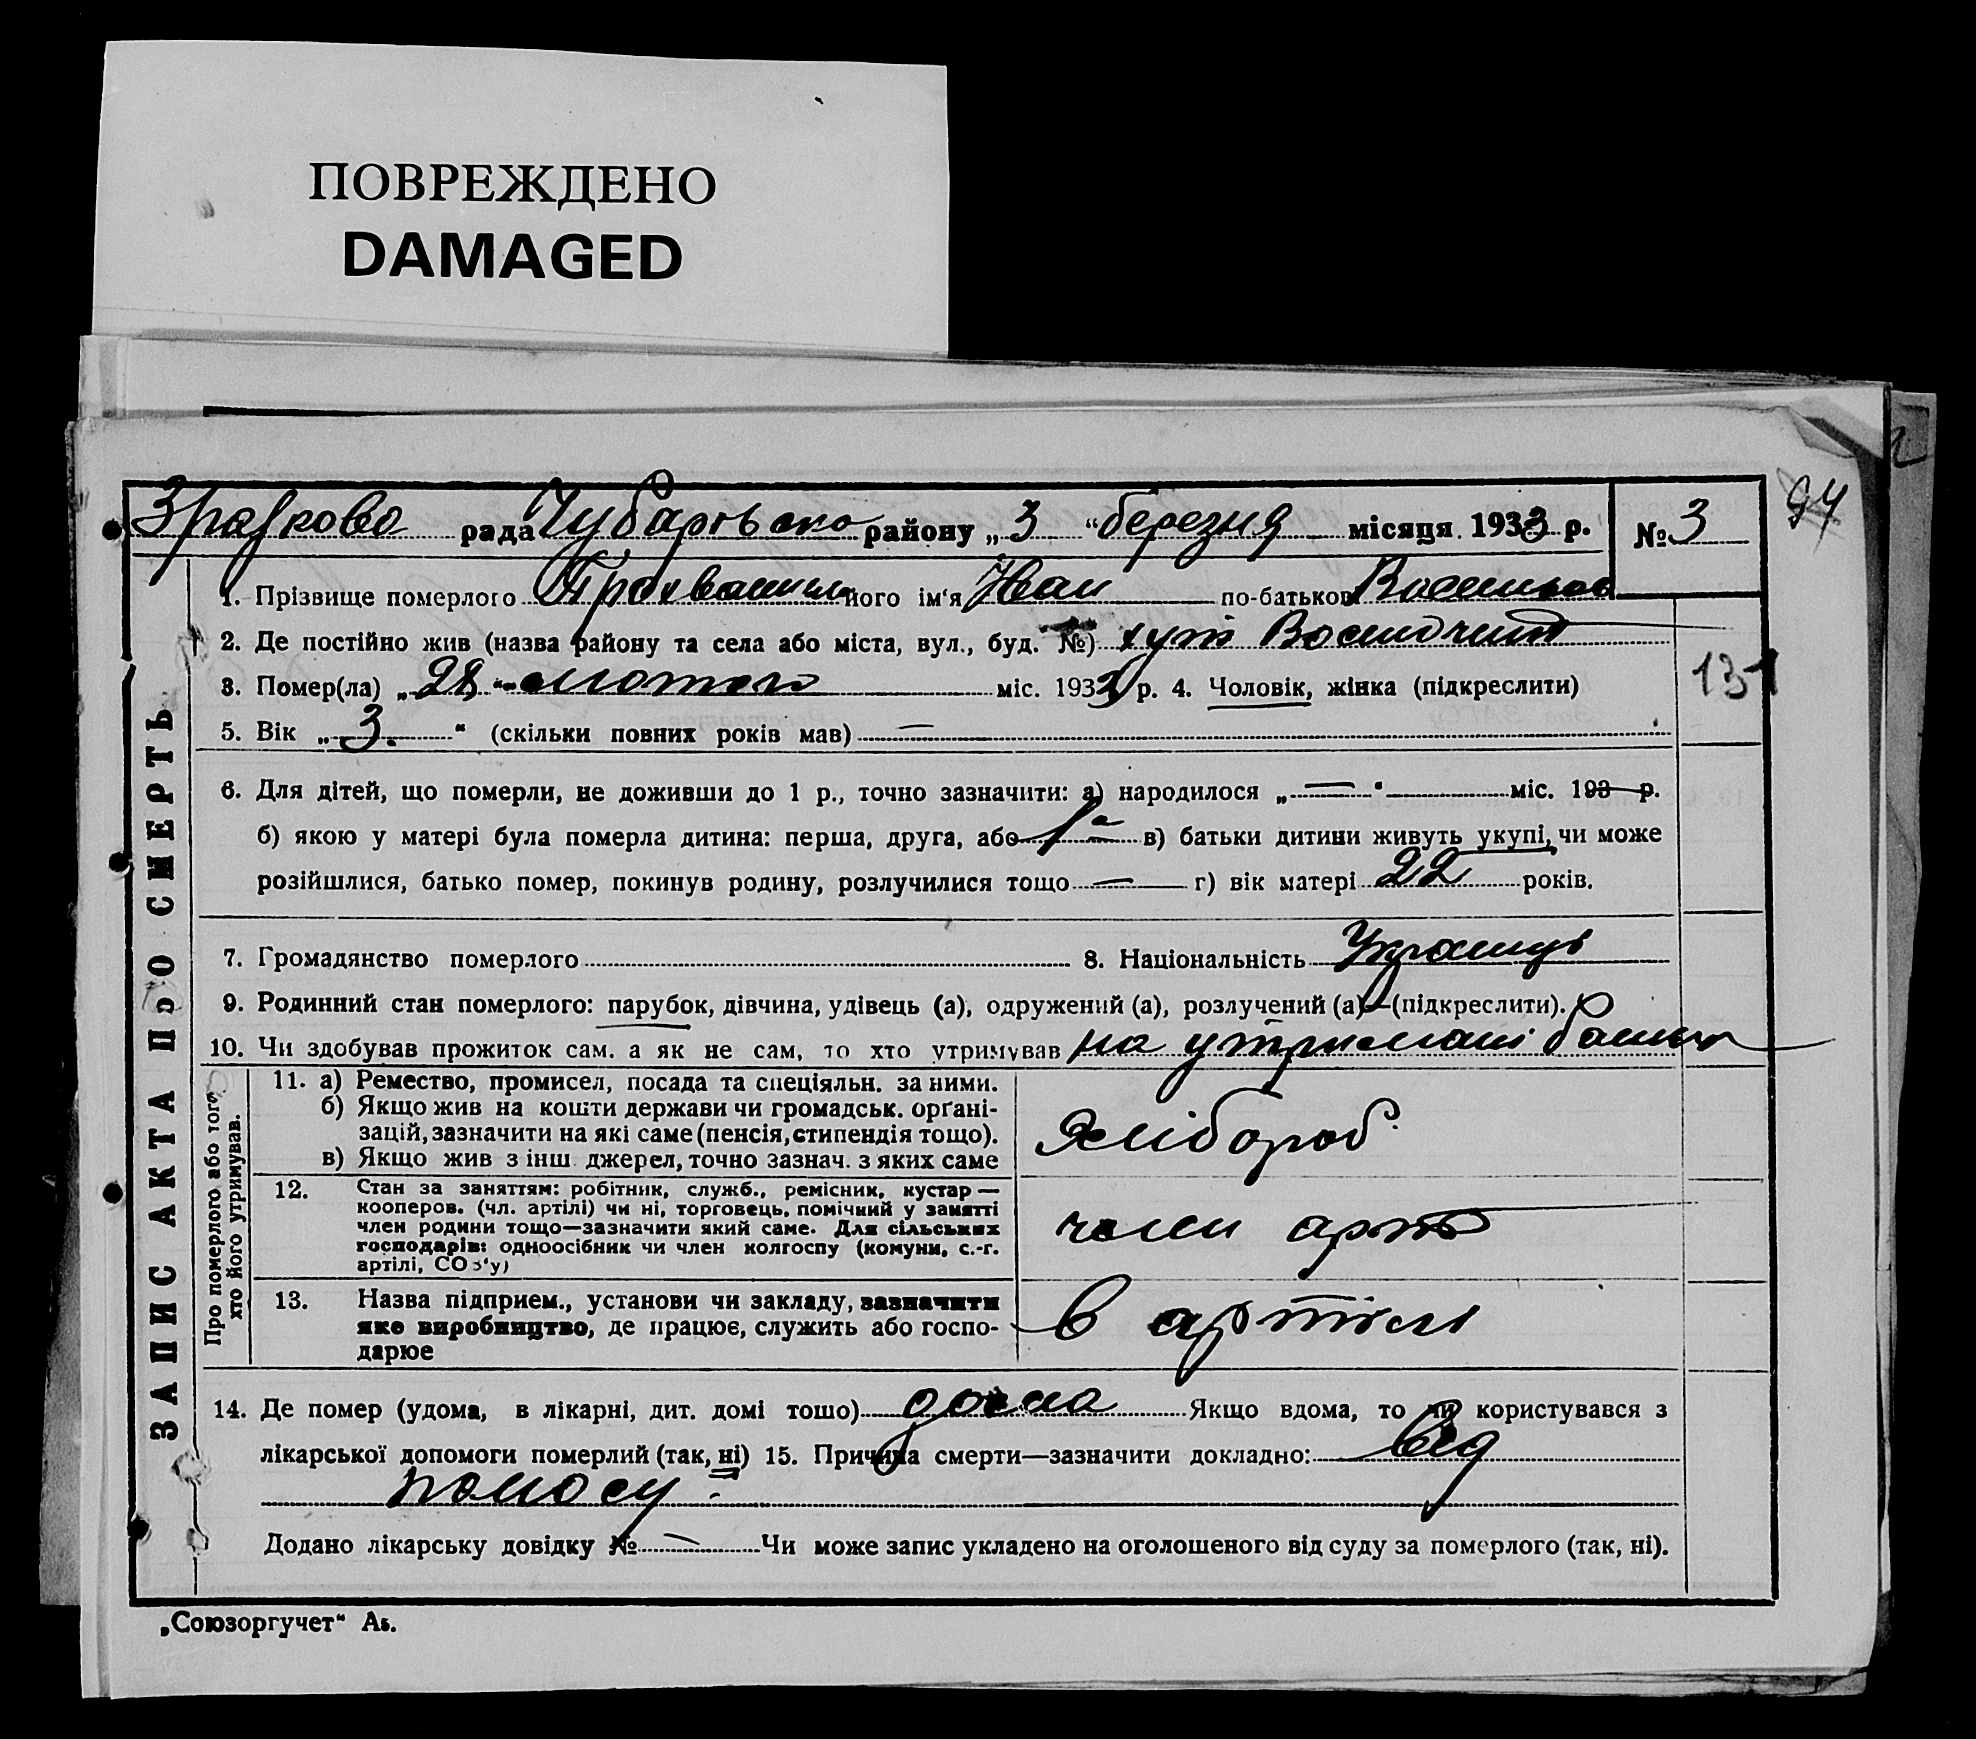 ПОВРЕЖДЕНО
DAMAGED
94
рада Чубарівсько району „ 3 “ березня місяця 1933 р. № 3
1. Прізвище померлого його ім‘я Іван по-батькові
2. Де постійно жив (назва району та села або міста, вул., буд. №) хут
3. Помер(ла) „ 28 “ лютого міс. 1933 р. 4. Чоловік, жінка (підкреслити)
131
5. Вік „ 3. “ (скільки повних років мав) —
6. Для дітей, що померли, не доживши до 1 р., точно зазначити: а) народилося „ — “ міс. 193 р.
б) якою у матері була померла дитина: перша, друга, або 1а в) батьки дитини живуть укупі, чи може
розійшлися, батько помер, покинув родину, розлучилися тощо — г) вік матері 22 років.
7. Громадянство померлого 8. Національність Українець
9. Родинний стан померлого: парубок, дівчина, удівець (а), одружений (а), розлучений (а)—(підкреслити).
10. Чи здобував прожиток сам. а як не сам, то хто утримував на утримані батька
ЗАПИС АКТА ПРО СМЕРТЬ
Про померлого або того, хто його утримував.
11. а) Ремество, промисел, посада та спеціяльн. за ними.
б) Якщо жив на кошти держави чи громадськ. орґані-
зацій, зазначити на які саме (пенсія, стипендія тощо).
в) Якщо жив з інш джерел, точно зазнач. з яких саме
Хлібороб
12. Стан за заняттям: робітник, служб., ремісник, кустар —
кооперов. (чл. артілі) чи ні, торговець, помічний у занятті
член родини тощо—зазначити який саме. Для сільських
господарів: одноосібник чи член колгоспу (комуни, с.-г.
артілі, СОЗ‘у)
член арт
13. Назва підприєм., установи чи закладу, зазначити
яке виробництво, де працює, служить або госпо-
дарює
в артілі
14. Де помер (удома, в лікарні, дит. домі тощо) дома Якщо вдома, то чи користувався з
лікарської допомоги померлий (так, ні) 15. Причина смерти—зазначити докладно: від
поносу
Додано лікарську довідку № — Чи може запис укладено на оголошеного від суду за померлого (так, ні).
„Союзоргучет“ Аб.